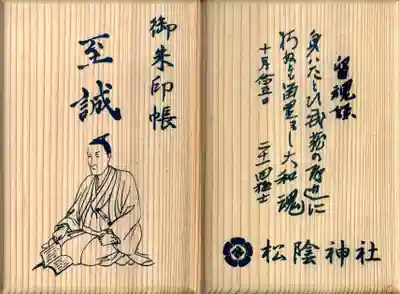 御朱印帳
至誠
留魂録
身ハたとひ武蔵の野辺に
朽ぬとも留置まし大和魂
十月念五日 二十一回猛士
松陰神社